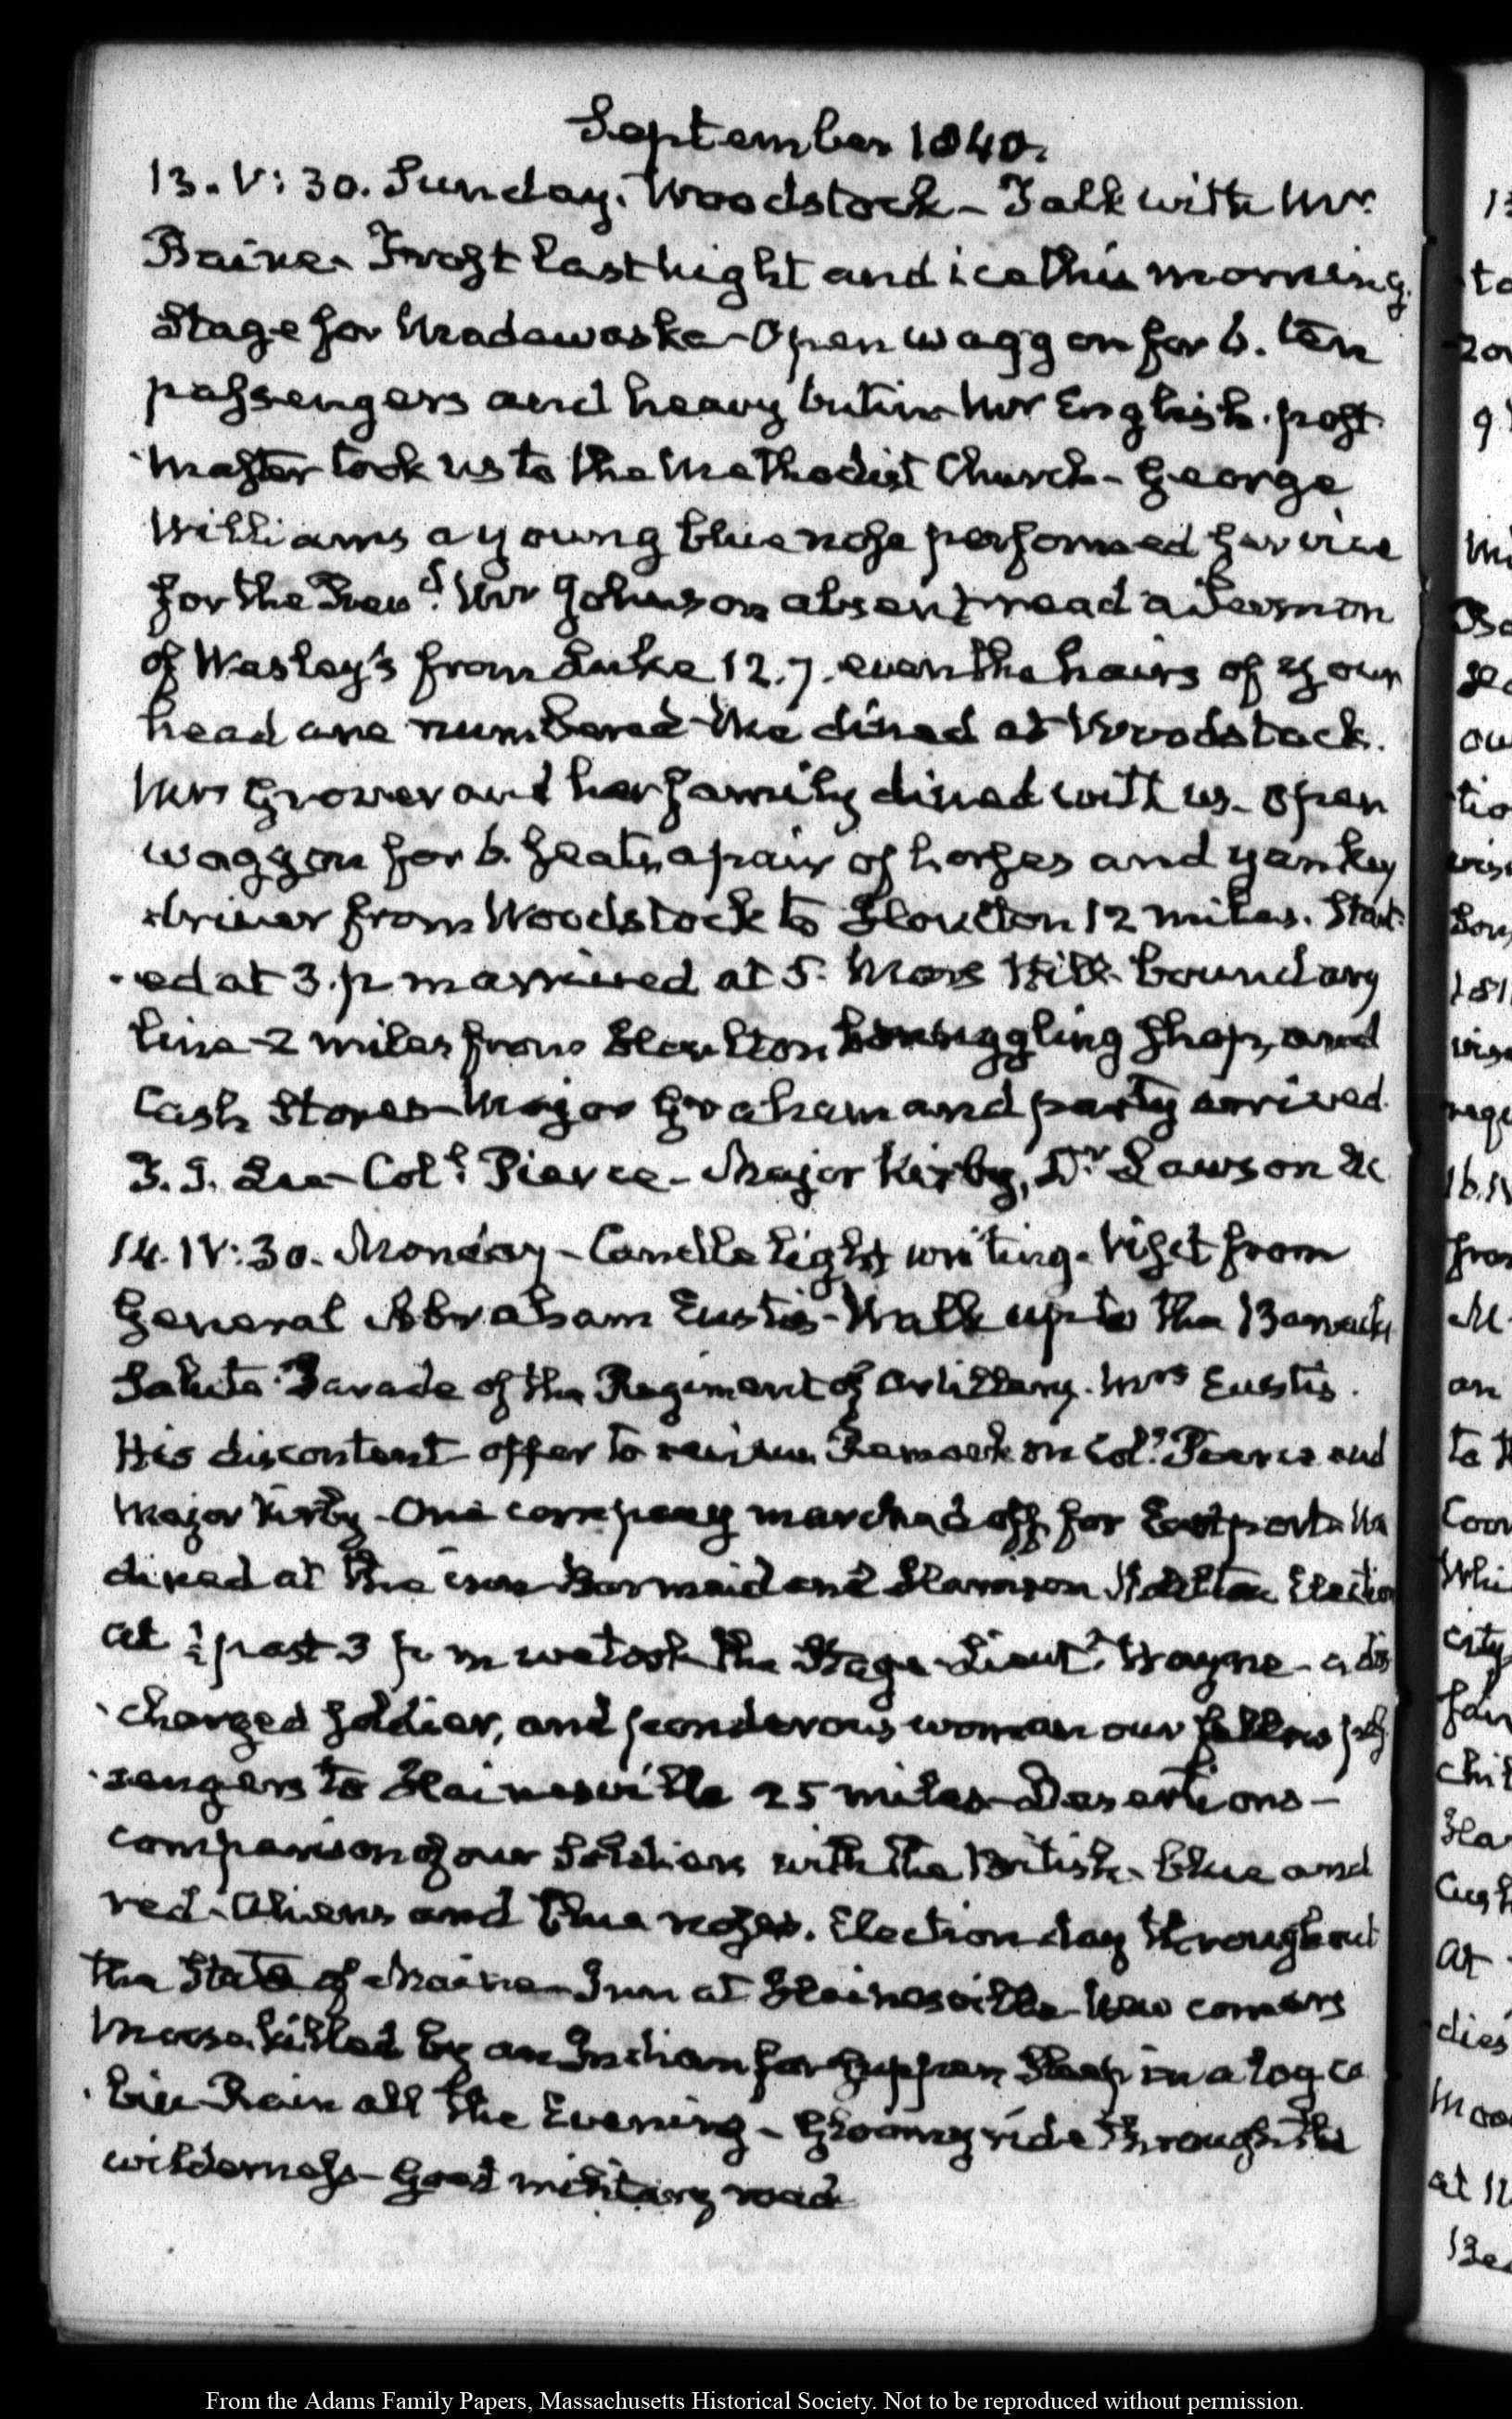 September 1840.
13. V:30. Sunday. Woodstock – Talk with Mr
Baine. Frost last night and ice this morning.
Stage for Madawaska – Open waggon for 6. ten
passengers and heavy Mr English. post
master took us to the Methodist Church – George
Williams a young blue nose performed service
for the Revd. Mr Johnson absent, read a Sermon
of Wesley's from Luke 12.7. even the hairs of your
head are numbered – We dined at Woodstock.
Mrs Grover and her family dined with us – open
waggon for 6. seats, a pair of horses and yankey
driver from Woodstock to Houlton 12 miles. Start-
ed at 3. p m arrived at 5. Mars Hill boundary
line – 2 miles from Houlton smuggling shop, and
Cash Stores – Major Graham and party arrived.
T. J. Lee – Coll. Pierce – Major Kirby, Dr Lawson &c
14. IV:30. Monday – Candle light writing. Visit from
General Abraham Eustis – Walk up to the Barracks
Salute. Parade of the Regiment of Artillery. Mrs Eustis.
His discontent offer to Remark on Col. Pierce and
Major Kirby – One company marched off for Eastport – We
dined at the inn Barmaid and Election
at ½ past 3 p m we took the Stage – Lieutt. Wayne – a dis-
charged soldier, and ponderous woman our fellow pas-
sengers to Hainesville 25 miles – Desertions –
comparison of our Soldiers with the British – blue and
red – Aliens and blue noses. Election day throughout
the State of Maine – Inn at Hainesville – New comers
Moose killed by an Indian for supper, Sleep in a log ca-
bin – Rain all the Evening – Gloomy ride through the
wilderness – Good military road
From the Adams Family Papers, Massachusetts Historical Society. Not to be reproduced without permission.